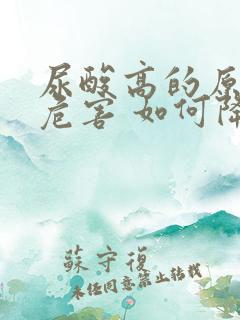 尿酸高的原
危害 如何降
蘇守復
未经同意禁止转载